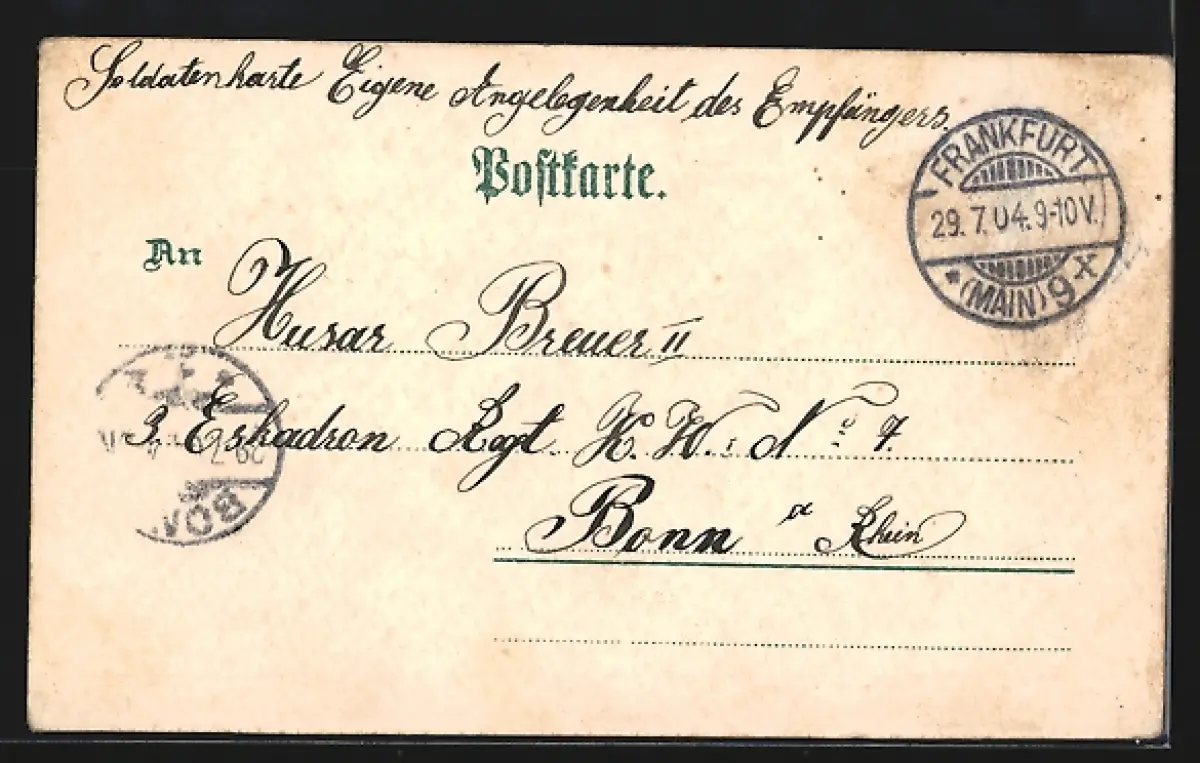 Soldatenkarte Eigene Angelegenheit des Empfängers.
Postkarte.
FRANKFURT
29.7.04.9-10V.
* (MAIN) 9 X
An
Husar Breuer II
3. Eskadron Regt. K. W. No 7.
Bonn a Rhein
BON